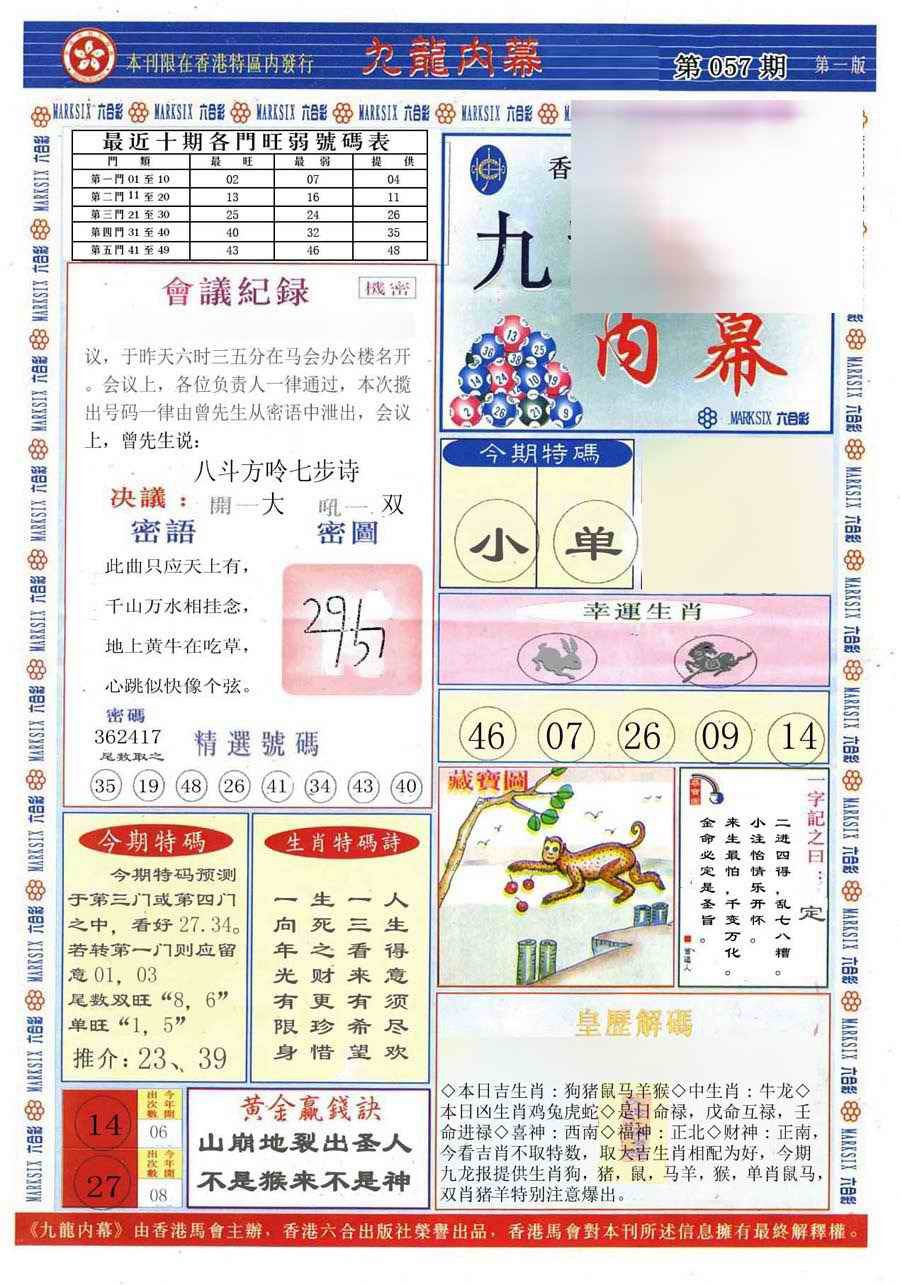 本刊限在香港特區内發行
九龍内幕
第 057 期
第一版
MARKSIX 六合彩 MARKSIX 六合彩 MARKSIX 六合彩 MARKSIX 六合彩 MARKSIX 六合彩
最近十期各門旺弱號碼表
門 類 最 旺 最 弱 提 供
第一門 01 至 10 02 07 04
第二門 11 至 20 13 16 11
第三門 21 至 30 25 24 26
第四門 31 至 40 40 32 35
第五門 41 至 49 43 46 48
香
九
内幕
13
36 38 25
14 24 10 19
2 26 21 9
MARKSIX 六合彩
會議紀録
機密
议，于昨天六时三五分在马会办公楼名开
。会议上，各位负责人一律通过，本次揽
出号码一律由曾先生从密语中泄出，会议
上，曾先生说：
八斗方呤七步诗
决議： 開一大 吼一 双
密語 密圖
此曲只应天上有，
千山万水相挂念，
地上黄牛在吃草，
心跳似快像个弦。
密碼
362417
尾数取之
精選號碼
35 19 48 26 41 34 43 40
今期特碼
小 单
幸運生肖
46 07 26 09 14
今期特碼
今期特码预测
于第三门或第四门
之中，看好 27.34。
若转第一门则应留
意 01，03
尾数双旺“8，6”
单旺“1，5”
推介：23、39
生肖特碼詩
人生得意须尽欢
一三看来有希望
生死之财更珍惜
一向年光有限身
藏寶圖
一字記之曰：定
二进四得，乱七八糟。
小注怡情乐开怀。
来生最怕，千变万化。
金命必定是圣旨。
皇歷解碼
◇本日吉生肖：狗猪鼠马羊猴◇中生肖：牛龙◇
本日凶生肖鸡兔虎蛇◇是日命禄，戊命互禄，壬
命进禄◇喜神：西南◇福神：正北◇财神：正南，
今看吉肖不取特数，取大吉生肖相配为好，今期
九龙报提供生肖狗，猪，鼠，马羊，猴，单肖鼠马，
双肖猪羊特别注意爆出。
14
今年開出次數
06
27
今年開出次數
08
黄金贏錢訣
山崩地裂出圣人
不是猴来不是神
《九龍内幕》由香港馬會主辦，香港六合出版社榮譽出品，香港馬會對本刊所述信息擁有最終解釋權。